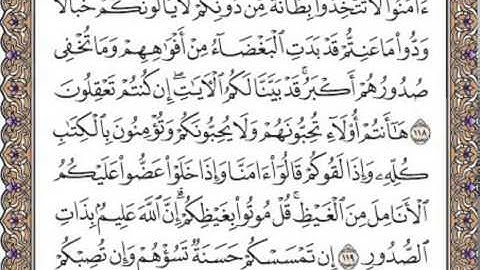 ءَامَنُوا۟ لَا تَتَّخِذُوا۟ بِطَانَةً مِّن دُونِكُمْ لَا يَأْلُونَكُمْ خَبَالًا
وَدُّوا۟ مَا عَنِتُّمْ قَدْ بَدَتِ ٱلْبَغْضَآءُ مِنْ أَفْوَٰهِهِمْ وَمَا تُخْفِى
صُدُورُهُمْ أَكْبَرُ ۚ قَدْ بَيَّنَّا لَكُمُ ٱلْءَايَٰتِ ۖ إِن كُنتُمْ تَعْقِلُونَ
١١٨ هَٰٓأَنتُمْ أُو۟لَآءِ تُحِبُّونَهُمْ وَلَا يُحِبُّونَكُمْ وَتُؤْمِنُونَ بِٱلْكِتَٰبِ
كُلِّهِۦ وَإِذَا لَقُوكُمْ قَالُوٓا۟ ءَامَنَّا وَإِذَا خَلَوْا۟ عَضُّوا۟ عَلَيْكُمُ
ٱلْأَنَامِلَ مِنَ ٱلْغَيْظِ ۚ قُلْ مُوتُوا۟ بِغَيْظِكُمْ ۗ إِنَّ ٱللَّهَ عَلِيمٌۢ بِذَاتِ
ٱلصُّدُورِ ١١٩ إِن تَمْسَسْكُمْ حَسَنَةٌ تَسُؤْهُمْ وَإِن تُصِبْكُمْ